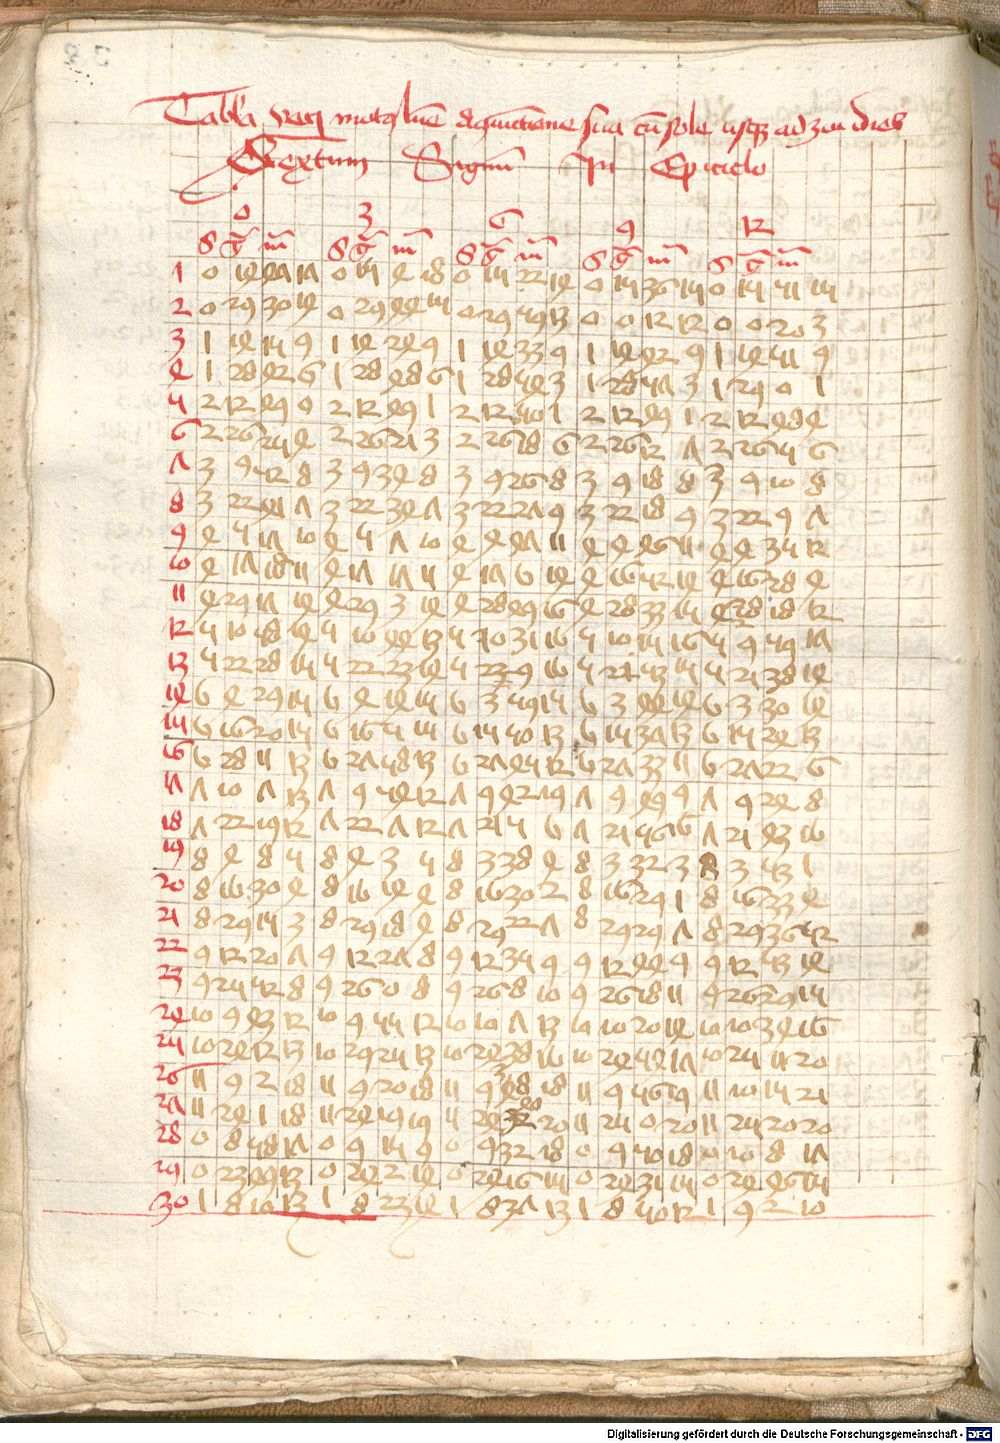 Tabla veri mot9 lune equatione sua cū sole usq3 ad 30 dies
Sextum Signū In Epiciclo
0 3 6 9 12
S g m S g m S g m S g m S g m
1 0 14 47 17 0 15 4 18 0 15 22 14 0 15 36 15 0 15 51 15
2 0 29 30 14 0 29 44 15 0 29 59 13 0 0 12 12 0 0 20 3
3 1 14 15 9 1 14 24 9 1 14 33 9 1 14 42 9 1 14 51 9
4 1 28 42 6 1 28 48 6 1 28 54 3 1 28 57 3 1 29 0 1
5 2 12 49 0 2 12 49 1 2 12 50 1 2 12 49 1 2 12 48 4
6 2 26 25 4 2 26 21 3 2 26 18 6 2 26 12 7 2 26 5 6
7 3 9 52 8 3 9 34 8 3 9 26 8 3 9 18 8 3 9 10 8
8 3 22 41 7 3 22 34 7 3 22 27 9 3 22 18 9 3 22 9 7
9 4 5 17 10 4 5 7 10 4 4 47 11 4 4 46 11 4 4 35 12
10 4 17 18 11 4 17 17 11 4 17 6 14 4 16 52 14 4 16 28 4
11 4 29 17 14 4 29 3 14 4 28 49 16 4 28 33 15 4 28 18 12
12 5 10 58 14 5 10 44 13 5 10 31 16 5 10 15 16 5 9 59 17
13 5 22 28 15 5 22 23 14 5 22 9 16 5 21 53 15 5 21 38 14
14 6 4 29 15 6 4 14 15 6 3 59 15 6 3 44 14 6 3 30 14
15 6 16 20 15 6 16 5 15 6 15 50 13 6 15 37 13 6 15 24 13
16 6 28 11 13 6 27 58 13 6 27 45 12 6 27 33 11 6 27 22 6
17 7 10 7 13 7 9 54 12 7 9 42 19 7 9 49 9 7 9 24 8
18 7 22 19 12 7 22 7 12 7 21 5 6 7 21 56 16 7 21 43 16
19 8 4 8 5 8 4 3 5 8 3 38 4 8 3 32 3 8 3 53 1
20 8 16 30 4 8 16 14 4 8 16 30 2 8 16 29 1 8 16 33 4
21 8 29 15 3 8 29 18 4 8 29 22 7 8 29 29 7 8 29 36 52
22 9 12 20 7 9 12 27 8 9 12 35 9 9 12 44 9 9 12 53 14
23 9 25 52 8 9 26 0 8 9 26 8 10 9 26 18 11 9 26 29 15
24 10 9 43 12 10 9 55 12 10 10 7 13 10 10 20 14 10 10 34 16
25 10 24 12 13 10 24 25 13 10 24 38 16 10 24 54 17 10 25 11 20
26 11 9 2 18 11 9 20 18 11 9 38 18 11 9 56 19 11 10 15 21
27 11 24 1 18 11 24 19 19 11 24 20 11 25 0 20 11 25 20 20
28 0 8 58 17 0 9 15 9 0 9 32 18 0 9 50 18 0 10 8 17
29 0 23 49 13 0 24 2 14 0 24 16 15 0 24 31 15 0 24 46 15
30 1 8 10 13 1 8 23 14 1 8 37 13 1 8 50 12 1 9 2 10
Digitalisierung gefördert durch die Deutsche Forschungsgemeinschaft - DFG